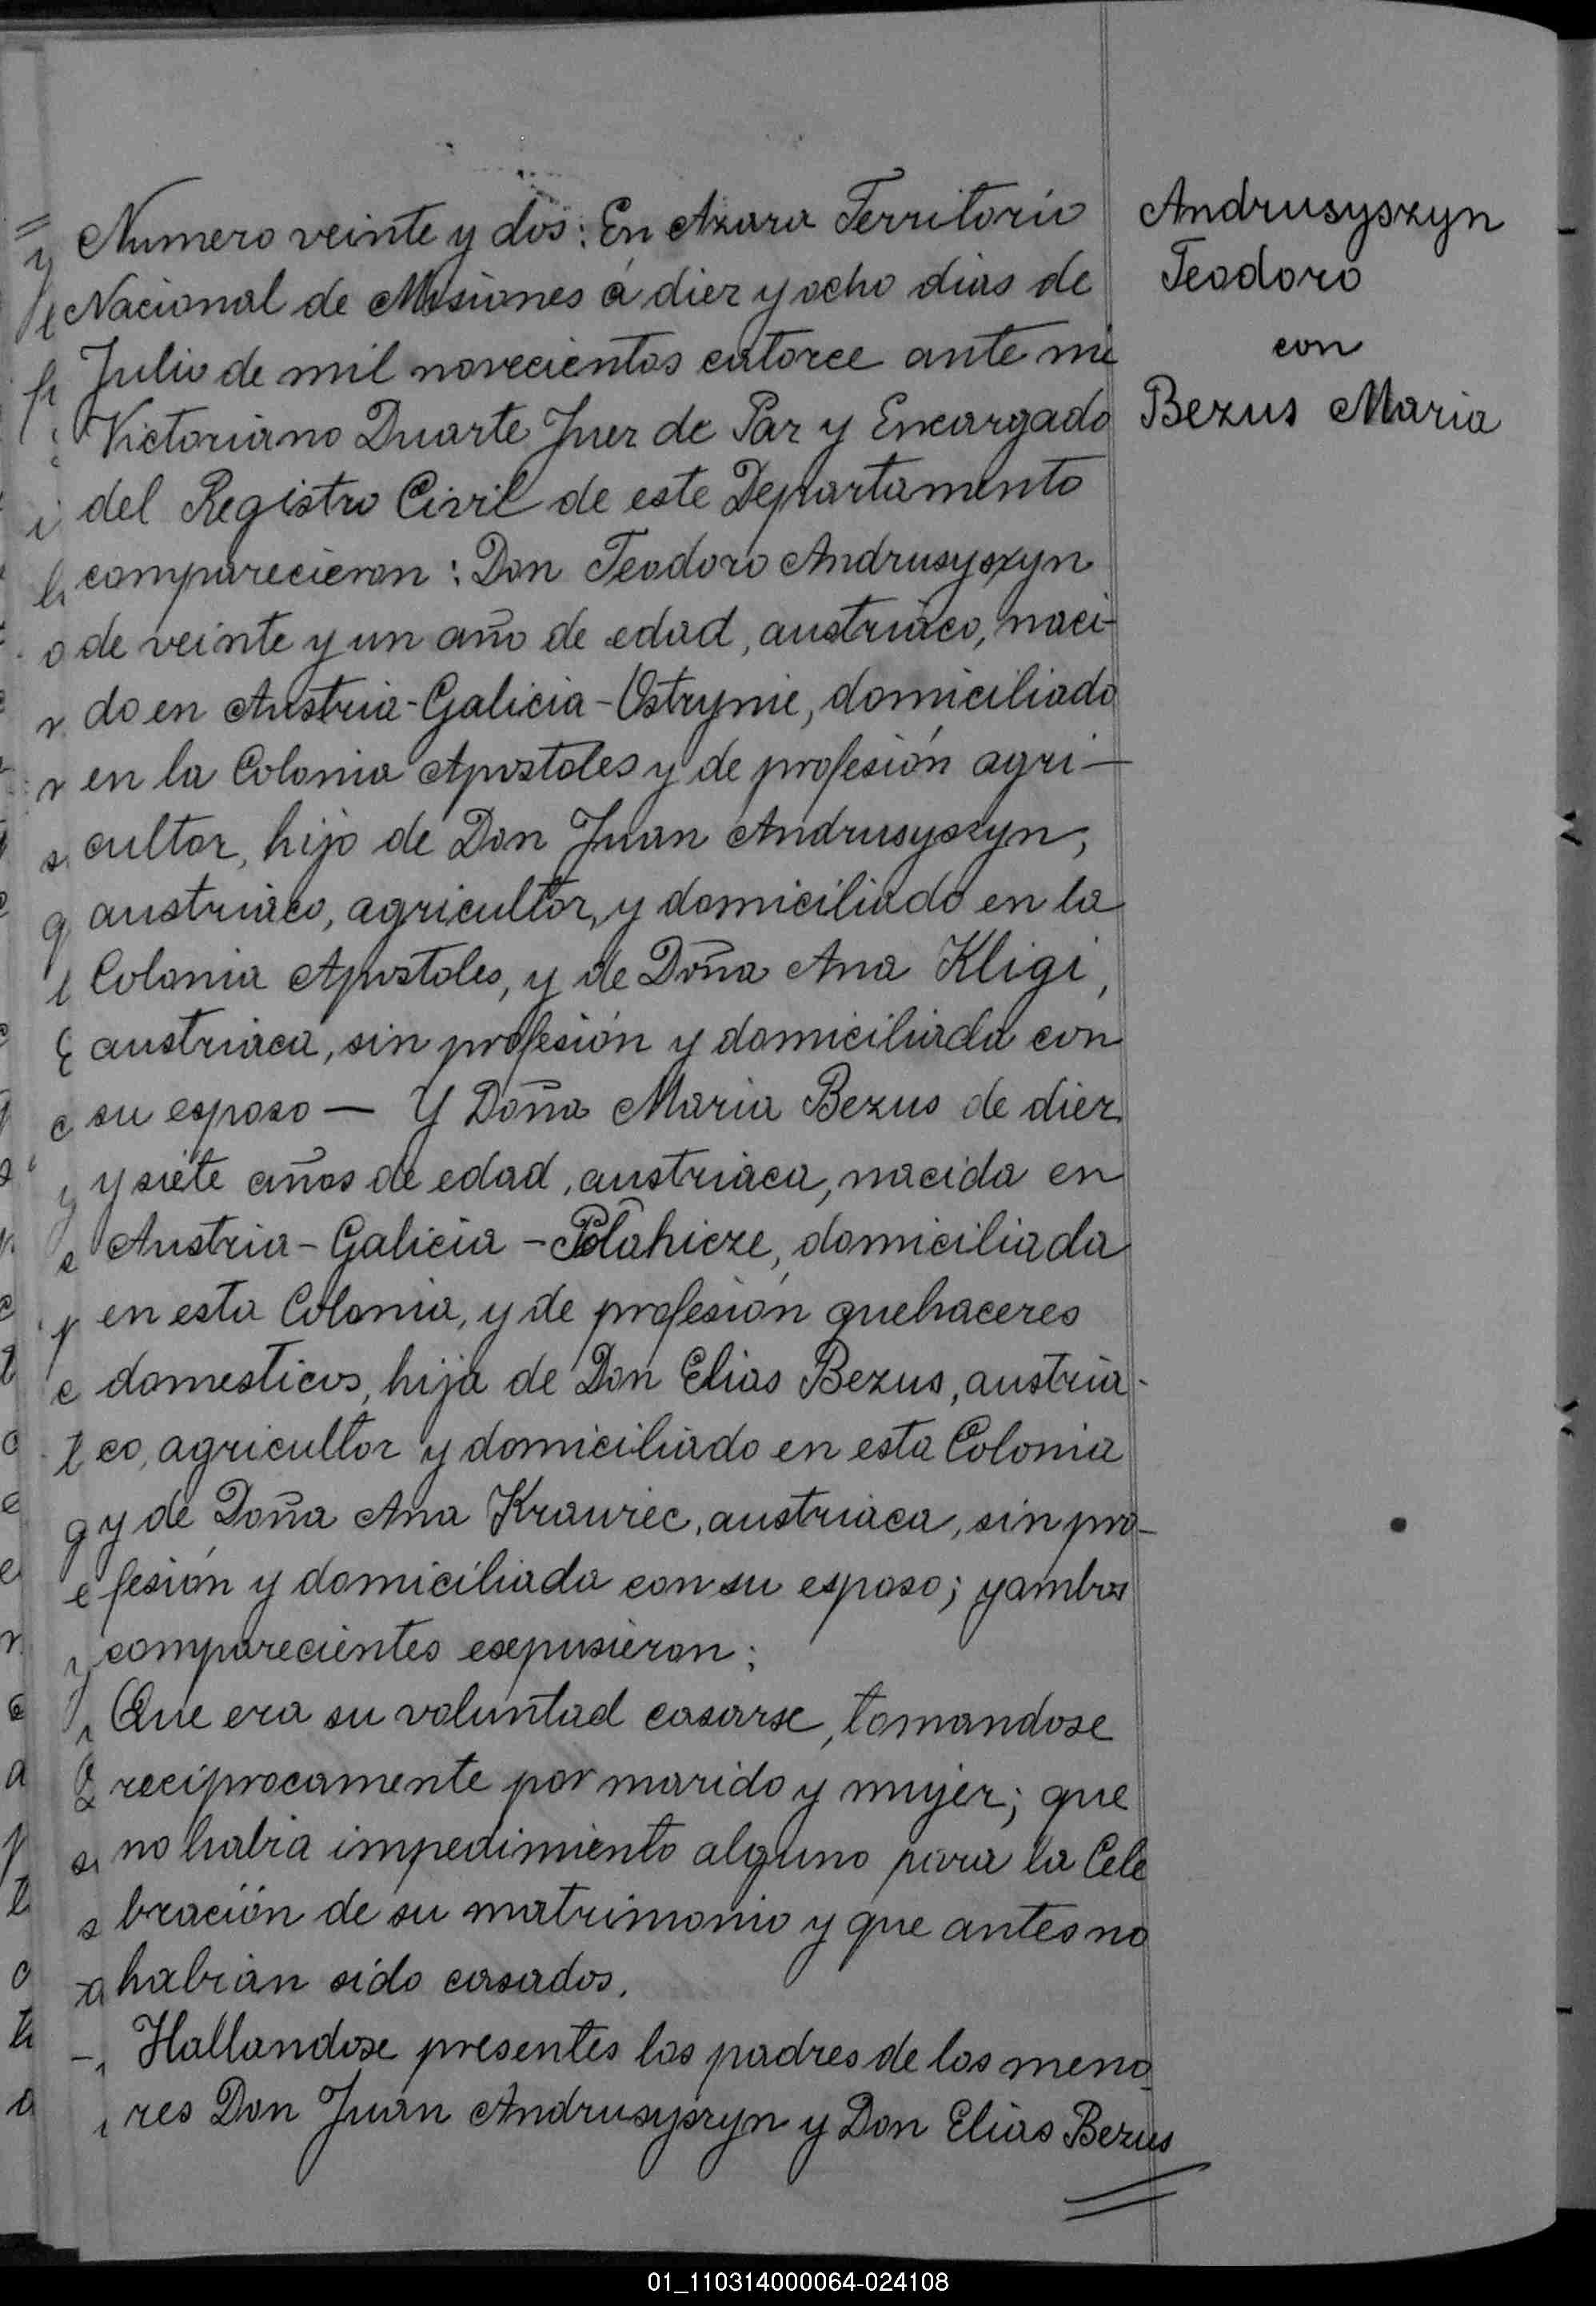 Numero veinte y dos: En Azara Territorio
Nacional de Misiones á diez y ocho dias de
Julio de mil novecientos catorce ante mi
Victoriano Duarte Juez de Paz y Encargado
del Registro Civil de este Departamento
comparecieron: Don Teodoro Andrusyszyn
de veinte y un año de edad, austriaco, naci-
do en Austria-Galicia-Ostrynie, domiciliado
en la Colonia Apostoles y de profesión agri-
cultor, hijo de Don Juan Andrusyszyn,
austriaco, agricultor, y domiciliado en la
Colonia Apostoles, y de Doña Ana Kligi,
austriaca, sin profesión y domiciliada con
su esposo — Y Doña Maria Bezus de diez
y siete años de edad, austriaca, nacida en
Austria-Galicia-Polahicze, domiciliada
en esta Colonia, y de profesión quehaceres
domesticos, hija de Don Elias Bezus, austria-
co, agricultor y domiciliado en esta Colonia
y de Doña Ana Krawiec, austriaca, sin pro-
fesión y domiciliada con su esposo; y ambos
comparecientes exepusieron:
Que era su voluntad casarse, tomandose
reciprocamente por marido y mujer; que
no habia impedimiento alguno para la Cele
bración de su matrimonio y que antes no
habian sido casados.
Hallandose presentes los padres de los meno
res Don Juan Andrusyszyn y Don Elias Bezus
Andrusyszyn
Teodoro
con
Bezus Maria
01_110314000064-024108